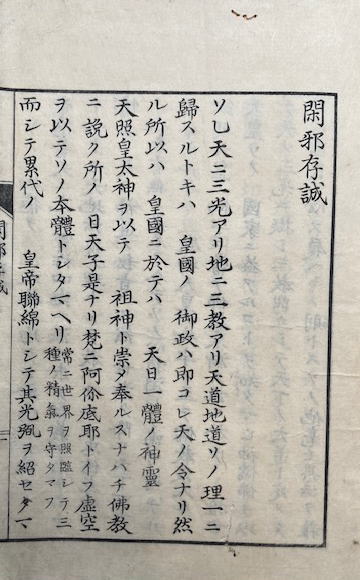 閑邪存誠
ソレ天ニ三光アリ地ニ三教アリ天道地道ソノ理一ニ
歸スルトキハ 皇國ノ 御政ハ即コレ天ノ令ナリ然
ル所以ハ 皇國ニ於テハ 天日一體ノ神靈
天照皇太神ヲ以テ 祖神ト崇メ奉ルスナハチ佛教
ニ説ク所ノ日天子是ナリ梵ニ阿佱底耶トイフ虚空
ヲ以テソノ本體トシタマヘリ常ニ世界ヲ照臨シテ三
種ノ精氣ヲ守タマフ
而シテ累代ノ 皇帝聯綿トシテ其光
ヲ紹セタマ
閑邪存誠